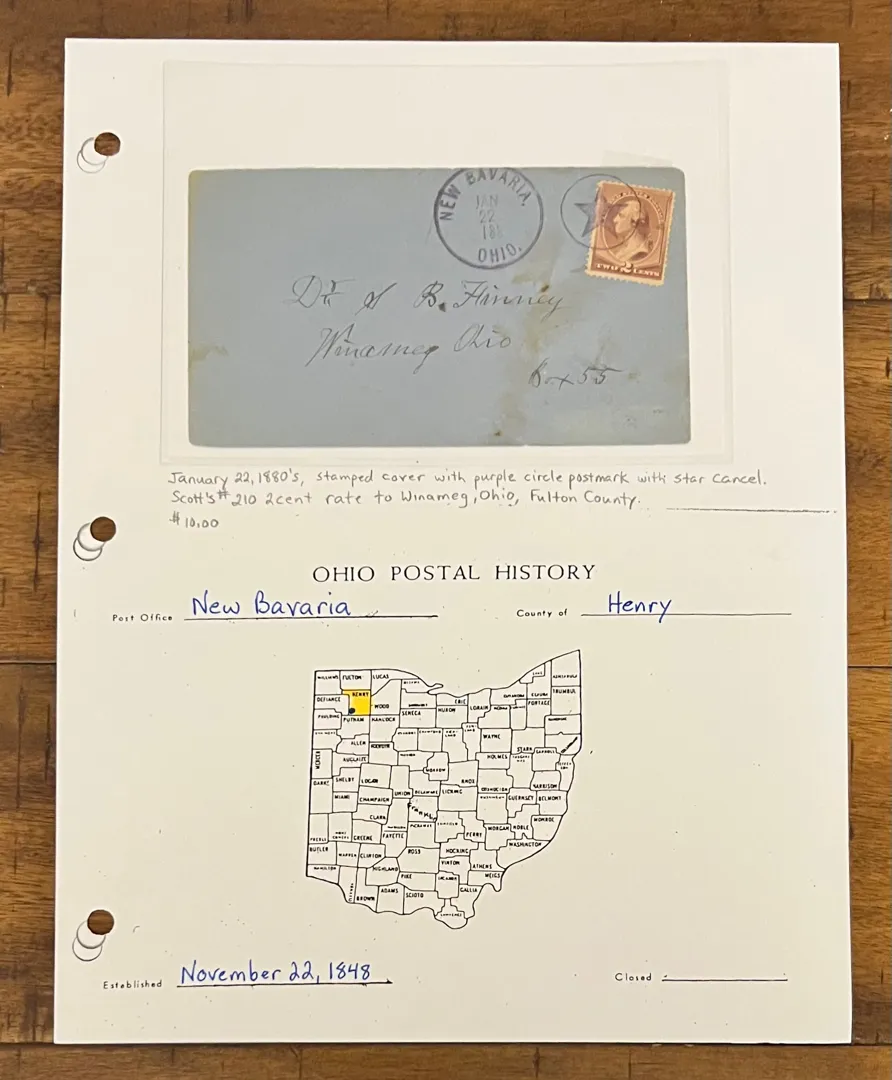 NEW BAVARIA,
JAN
22
188
OHIO.
TWO 2 CENTS
Dr S B. Finney
Winameg Ohio
Box 55
January 22, 1880's, stamped cover with purple circle postmark with star cancel.
Scott's # 210 2cent rate to Winameg, Ohio, Fulton County.
$10.00
OHIO POSTAL HISTORY
Post Office New Bavaria County of Henry
WILLIAMS FULTON LUCAS
DEFIANCE HENRY WOOD SENECA ERIE HURON LORAIN PORTAGE TRUMBUL
PAULDING PUTNAM HANCOCK
ALLEN WAYNE STARK CARROLL
MERCER AUGLAIZE HOLMES
DARKE SHELBY LOGAN MORROW KNOX HARRISON
MIAMI CHAMPAIGN UNION DELAWARE LICKING GUERNSEY BELMONT
CLARK Franklin MONROE
PREBLE GREENE FAYETTE PERRY MORGAN NOBLE
BUTLER WARREN CLINTON ROSS HOCKING WASHINGTON
HAMILTON HIGHLAND VINTON ATHENS
PIKE MEIGS
BROWN ADAMS SCIOTO GALLIA
Established November 22, 1848 Closed